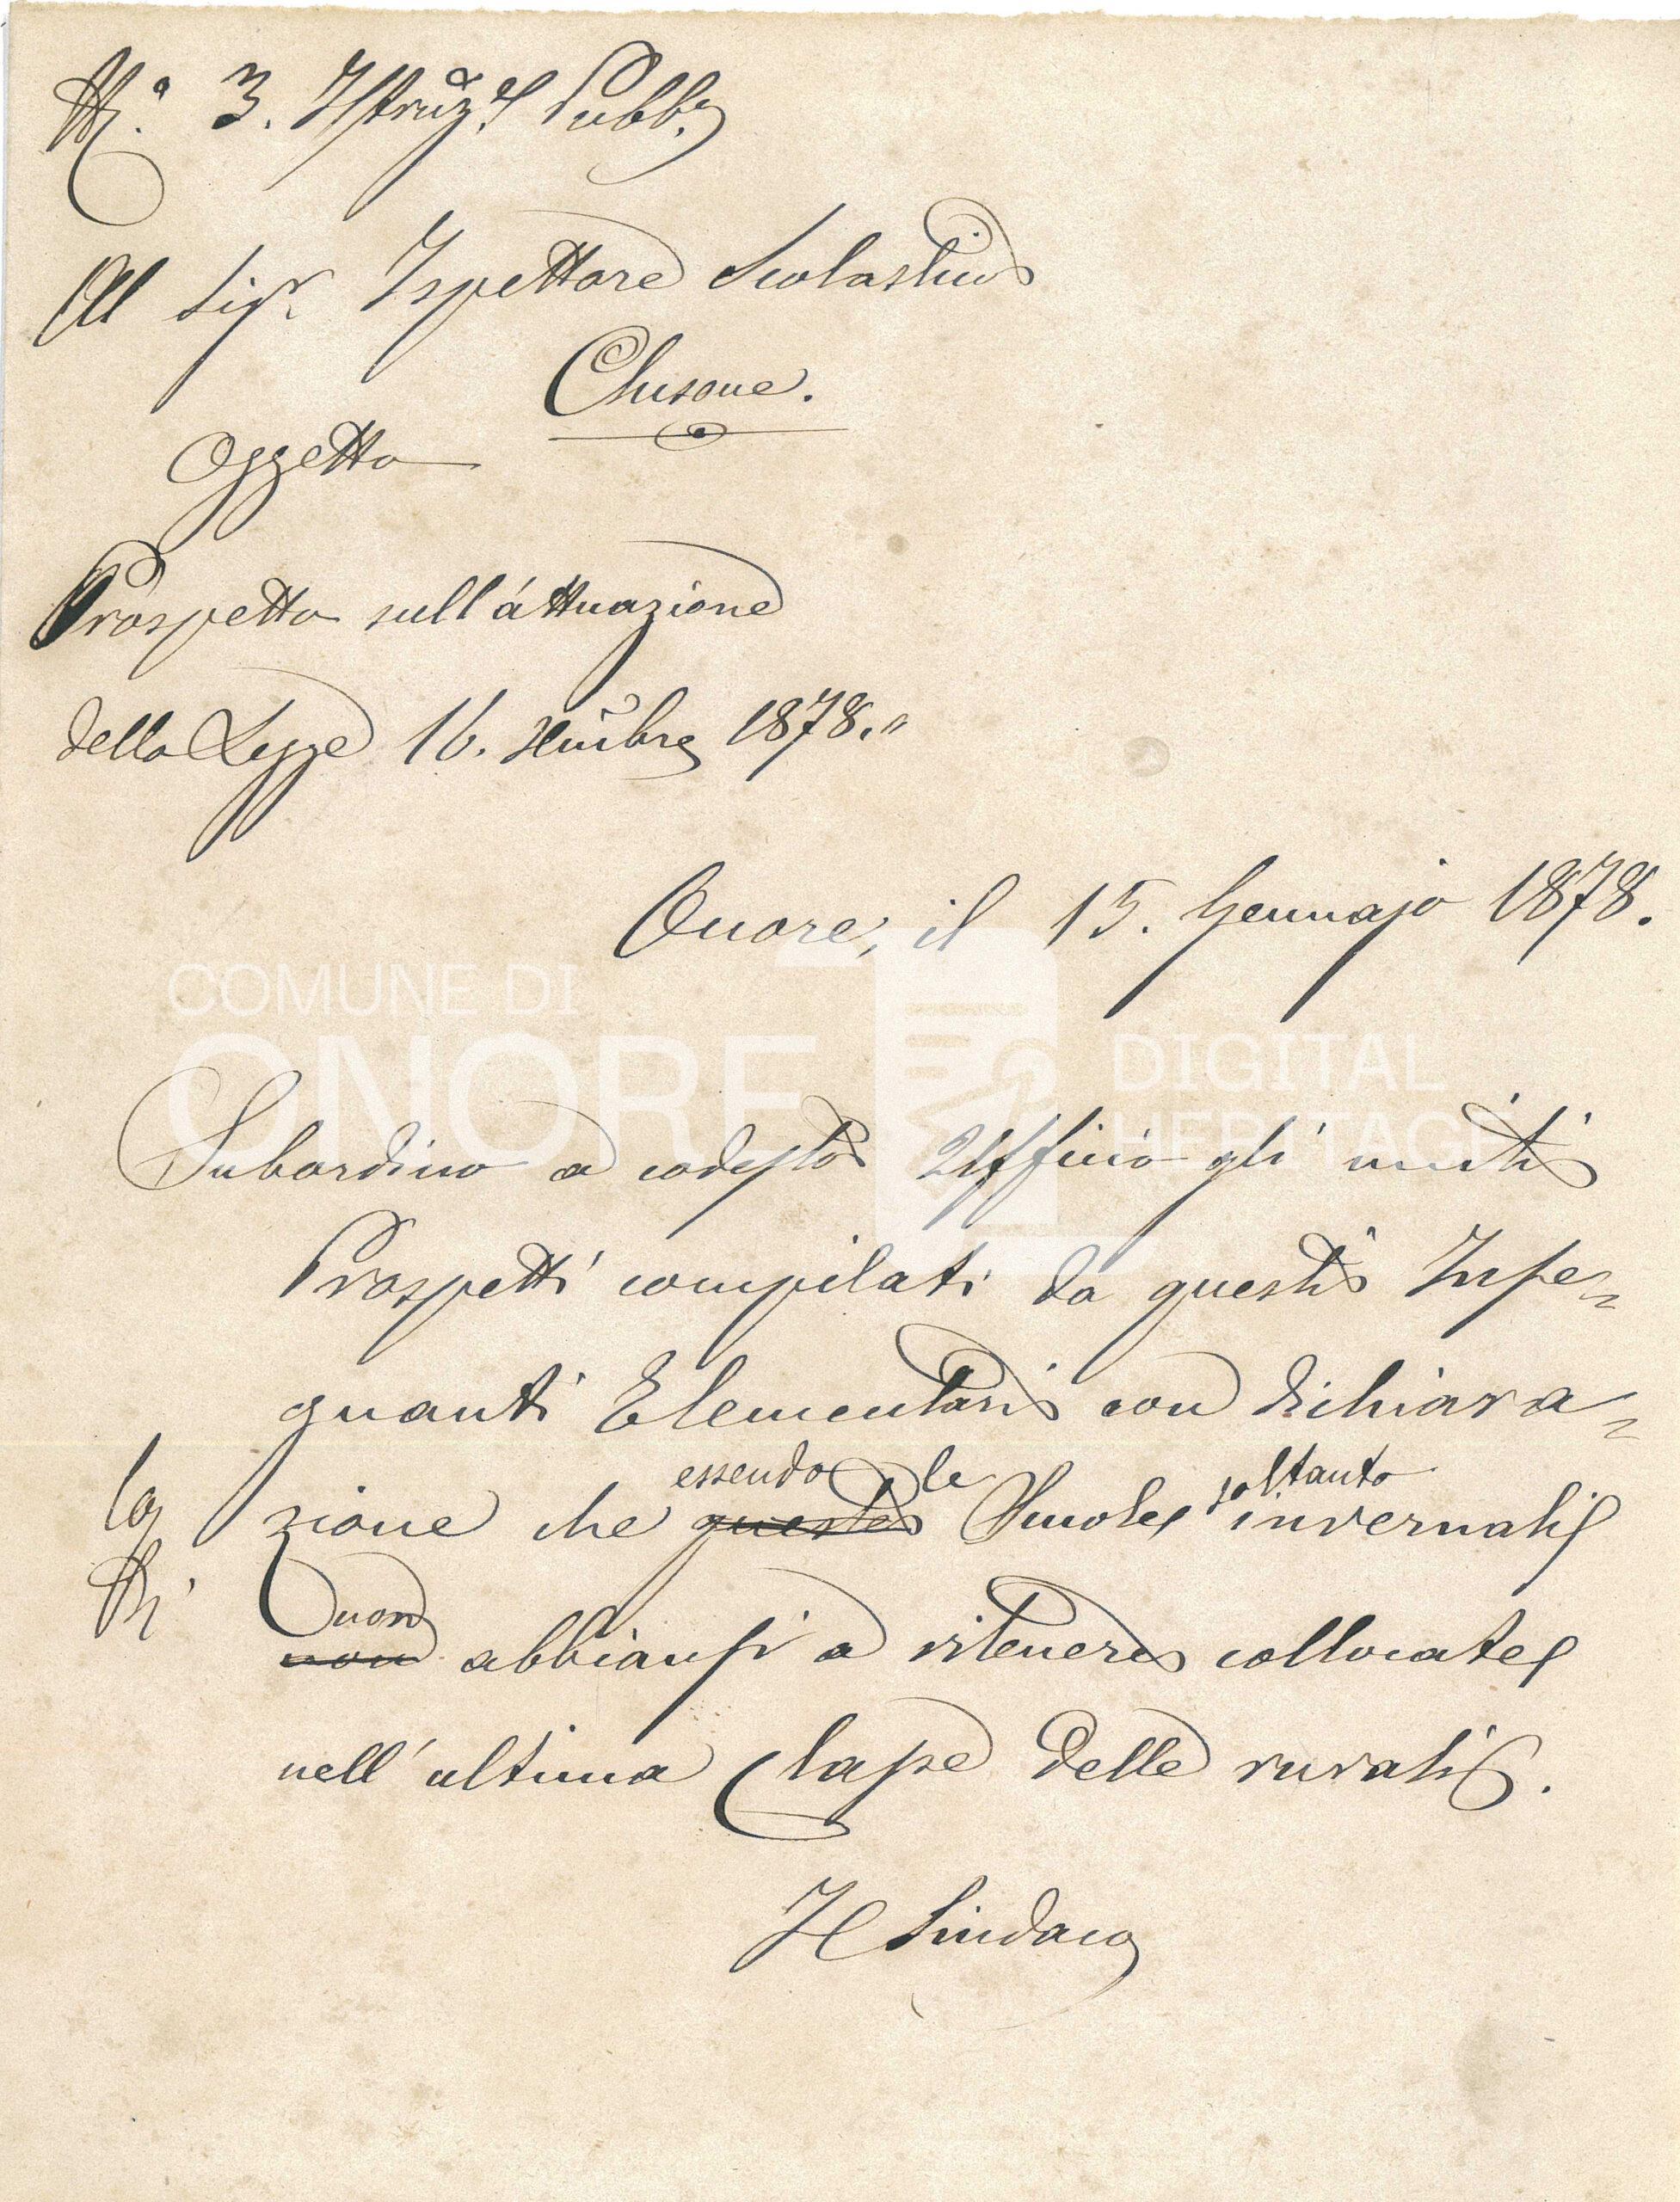 N.° 3. Istruz.e Pubb.a
Al Sig.r Ispettore Scolastico
Clusone.
Oggetto
Prospetto sull'attuazione
della Legge 16. 1878."
Onore, il 15. Gennajo 1878.
COMUNE DI
ONORE
DIGITAL
HERITAGE
Subordino a codesto Ufficio gli uniti
Prospetti compilati da questi Inse=
gnanti Elementari con dichiara=
essendo le soltanto
zione che queste Scuole invernali
non
non abbiansi a ritenere collocate
nell'ultima Classe delle rurali.
Il Sindaco